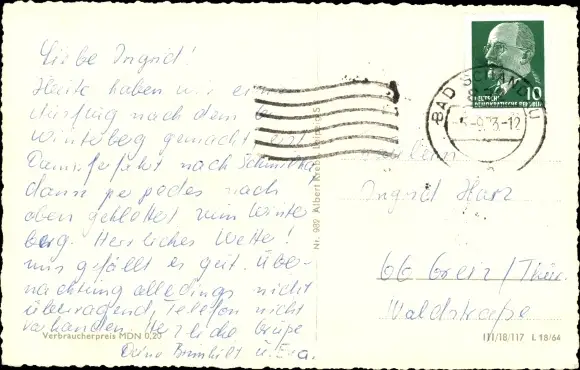 Liebe Ingrid!
Heute haben wir ein
Ausflug nach dem
Winterberg gemacht erst
Dampferfahrt nach Schmilka
dann per pedes nach
oben geklettert zum Winter
berg. Herrliches Wetter!
uns gefällt es gut. Über-
nachtung alledings nicht
überragend, Telefon nicht
vorhanden. Herzliche Grüße
Deine Brunhilt u. Eva.
Verbraucherpreis MDN 0,20
Nr. 989 Albert
10
DEUTSCHE
DEMOKRATISCHE REPUBLIK
BAD SCHANDAU
-12
Fräulein
Ingrid Harz
66 Greiz/Thür.
Waldstraße
III/18/117 L 18/64